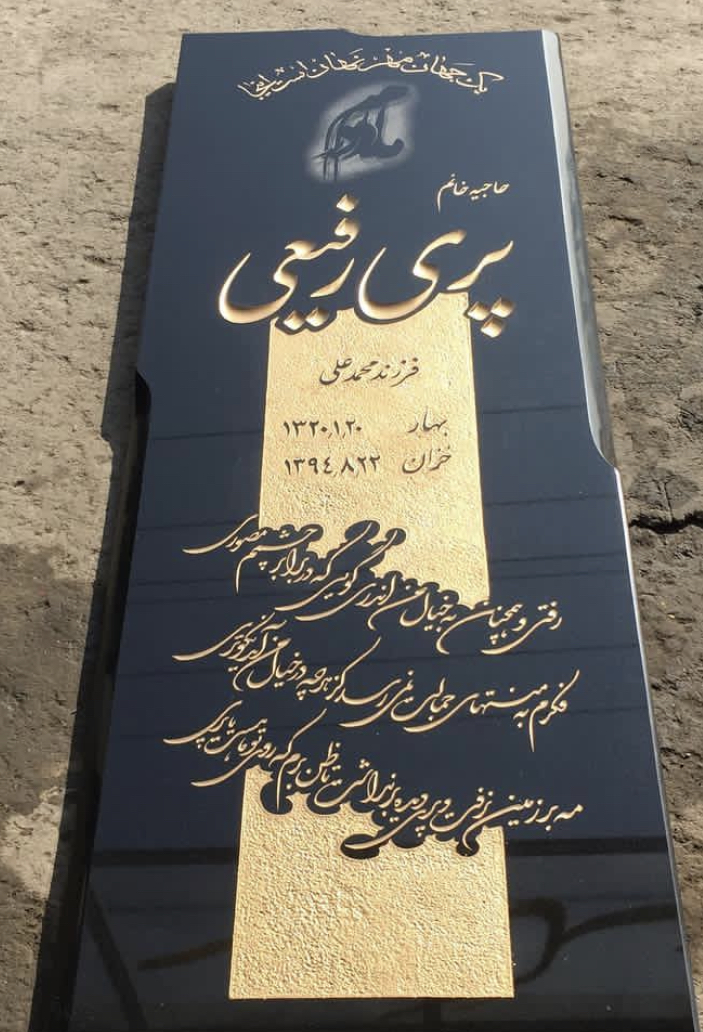 یک جهان مهر نهان است اینجا
مادر
حاجیه خانم
پری رفیعی
فرزند محمد علی
بهار ۱۳۲۰,۱,۲۰
خزان ۱۳۹۴,۸,۲۲
رفتی و همچنان به خیال من اندری گویی که در برابر چشمم مصوری
فکرم به منتهای جمالت نمی رسد کز هر چه در خیال من آمد نکوتری
مه بر زمین نرفت و پری دیده برنداشت تا ظن برم که روی تو ماهست یا پری